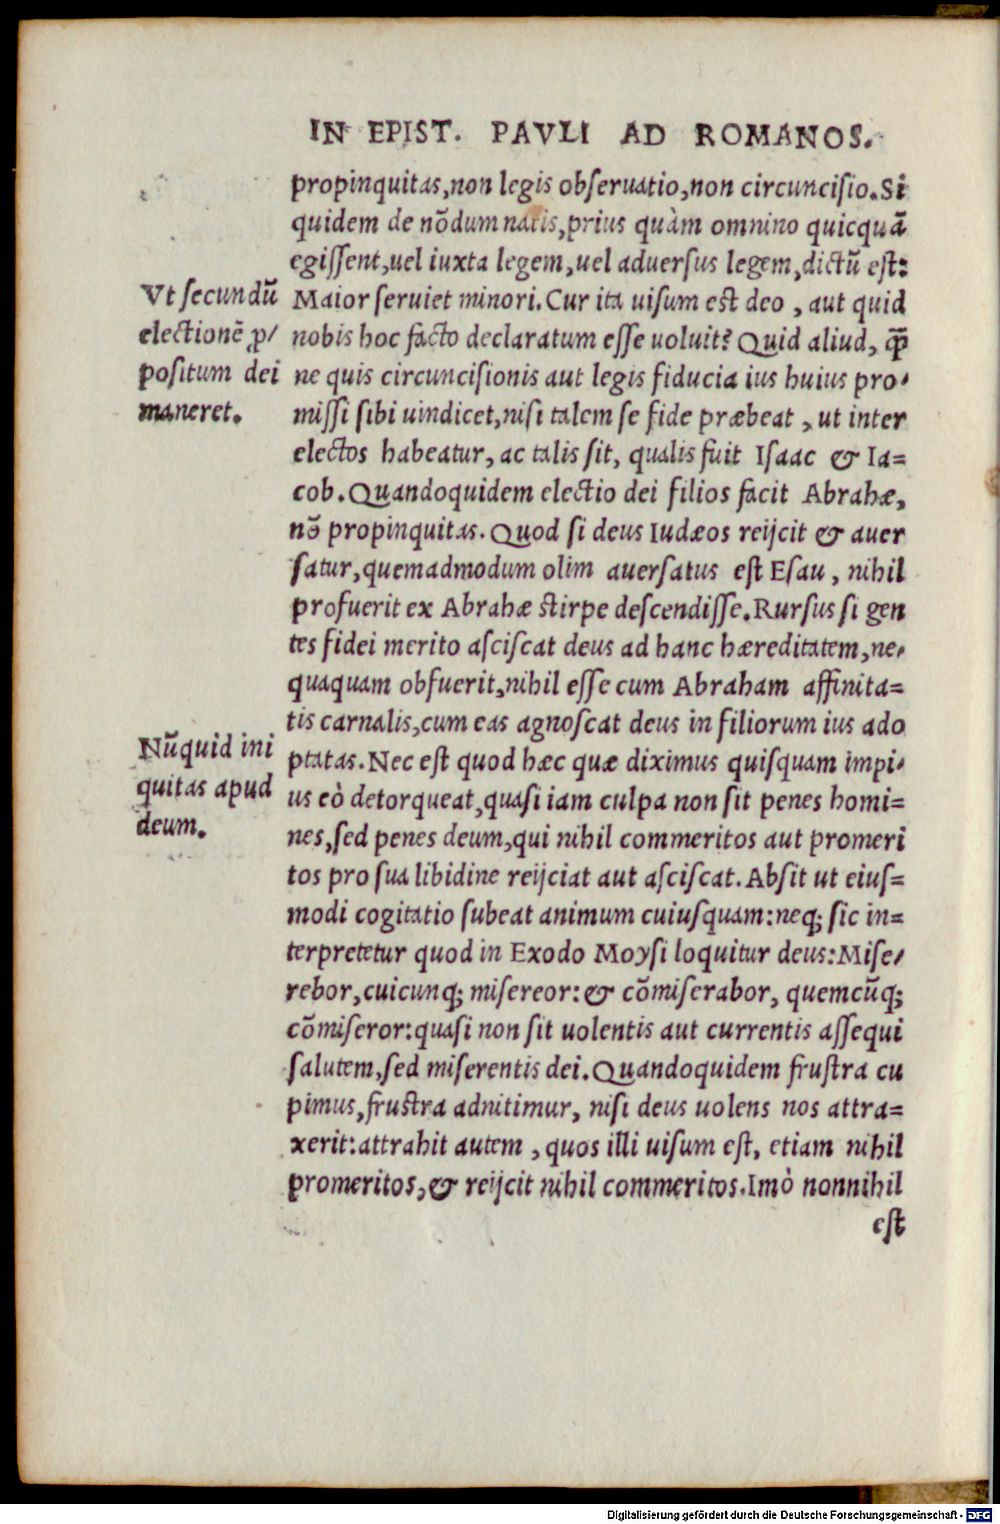 IN EPIST. PAVLI AD ROMANOS.
propinquitas,non legis obſeruatio,non circunciſio.Si
quidem de nõdum natis,prius quàm omnino quicquã
egiſſent,uel iuxta legem,uel aduerſus legem,dictũ eſt:
Maior ſeruiet minori.Cur ita uiſum eſt deo , aut quid
nobis hoc facto declaratum eſſe uoluit? Quid aliud, ꝙ̃
ne quis circunciſionis aut legis fiducia ius huius pro-
miſſi ſibi uindicet,niſi talem ſe fide præbeat , ut inter
electos habeatur, ac talis ſit, qualis fuit Iſaac & Ia=
cob.Quandoquidem electio dei filios facit Abrahæ,
nõ propinquitas. Quod ſi deus Iudæos reijcit & auer
ſatur,quemadmodum olim auerſatus eſt Eſau , nihil
profuerit ex Abrahæ ſtirpe deſcendiſſe.Rurſus ſi gen
tes fidei merito aſciſcat deus ad hanc hæreditatem,ne-
quaquam obfuerit,nihil eſſe cum Abraham affinita=
tis carnalis,cum eas agnoſcat deus in filiorum ius ado
ptatas.Nec eſt quod hæc quæ diximus quiſquam impi-
us eò detorqueat,quaſi iam culpa non ſit penes homi=
nes,ſed penes deum,qui nihil commeritos aut promeri
tos pro ſua libidine reijciat aut aſciſcat.Abſit ut eiuſ=
modi cogitatio ſubeat animum cuiuſquam:neq; ſic in=
terpretetur quod in Exodo Moyſi loquitur deus:Miſe-
rebor,cuicunq; miſereor:& cõmiſerabor, quemcũq;
cõmiſeror:quaſi non ſit uolentis aut currentis aſſequi
ſalutem,ſed miſerentis dei.Quandoquidem fruſtra cu
pimus,fruſtra adnitimur, niſi deus uolens nos attra=
xerit:attrahit autem , quos illi uiſum eſt, etiam nihil
promeritos,& reijcit nihil commeritos.Imò nonnihil
eſt
Vt ſecundũ
electionẽ ꝓ/
poſitum dei
maneret.
Nũquid ini
quitas apud
deum.
Digitalisierung gefördert durch die Deutsche Forschungsgemeinschaft - DFG